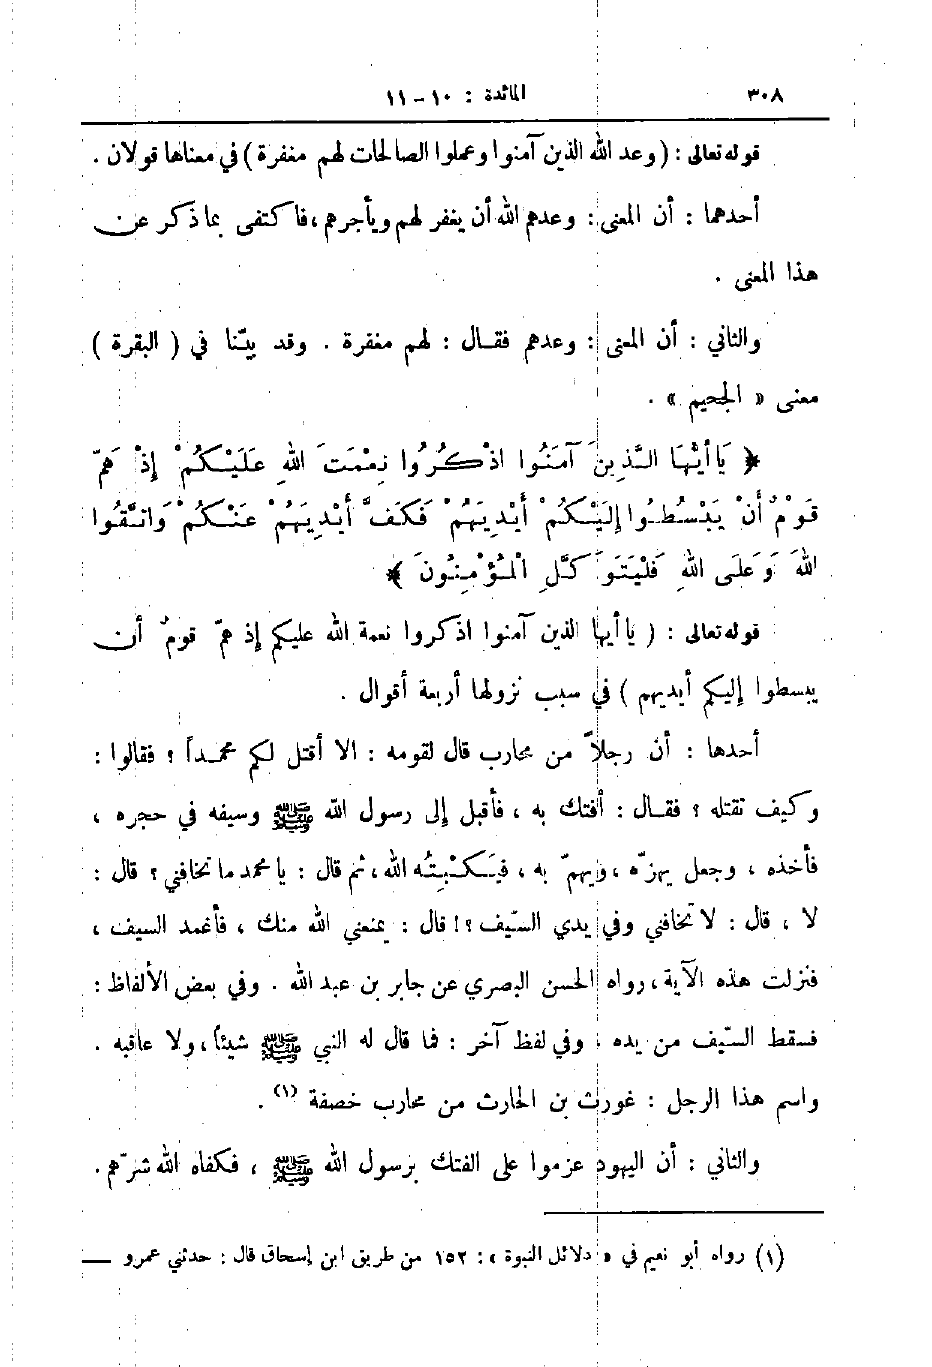 ٣٠٨ المائدة : ١٠-١١
قوله تعالى : ( وعد الله الذين آمنوا وعملوا الصالحات لهم مغفرة ) في معناها قولان .
أحدهما : أن المعنى : وعدهم الله أن يغفر لهم ويأجرهم ، فاكتفى بما ذكر عن
هذا المعنى .
والثاني : أن المعنى : وعدهم فقال : لهم مغفرة . وقد بيّنا في ( البقرة )
معنى « الجحيم » .
﴿ يَا أَيُّهَا الَّذِينَ آمَنُوا اذْكُرُوا نِعْمَتَ اللهِ عَلَيْكُمْ إِذْ هَمَّ
قَوْمٌ أَنْ يَبْسُطُوا إِلَيْكُمْ أَيْدِيَهُمْ فَكَفَّ أَيْدِيَهُمْ عَنْكُمْ وَاتَّقُوا
اللهَ وَعَلَى اللهِ فَلْيَتَوَكَّلِ الْمُؤْمِنُونَ ﴾
قوله تعالى : ( يا أيها الذين آمنوا اذكروا نعمة الله عليكم إذ همّ قوم أن
يبسطوا إليكم أيديهم ) في سبب نزولها أربعة أقوال .
أحدها : أن رجلاً من محارب قال لقومه : الا أقتل لكم محمداً ؟ فقالوا :
وكيف تقتله ؟ فقال : أفتك به ، فأقبل إلى رسول الله ﷺ وسيفه في حجره ،
فأخذه ، وجعل يهزّه ، ويهمّ به ، فيَكْبِتُه الله ، ثم قال : يا محمد ما تخافني ؟ قال :
لا ، قال : لا تخافني وفي يدي السّيف ؟! قال : يمنعني الله منك ، فأغمد السيف ،
فنزلت هذه الآية ، رواه الحسن البصري عن جابر بن عبد الله . وفي بعض الألفاظ :
فسقط السّيف من يده . وفي لفظ آخر : فما قال له النبي ﷺ شيئاً ، ولا عاقبه .
واسم هذا الرجل : غورث بن الحارث من محارب خصفة (١) .
والثاني : أن اليهود عزموا على الفتك برسول الله ﷺ ، فكفاه الله شرّهم .
(١) رواه أبو نعيم في « دلائل النبوة » : ١٥٢ من طريق ابن إسحاق قال : حدثني عمرو —